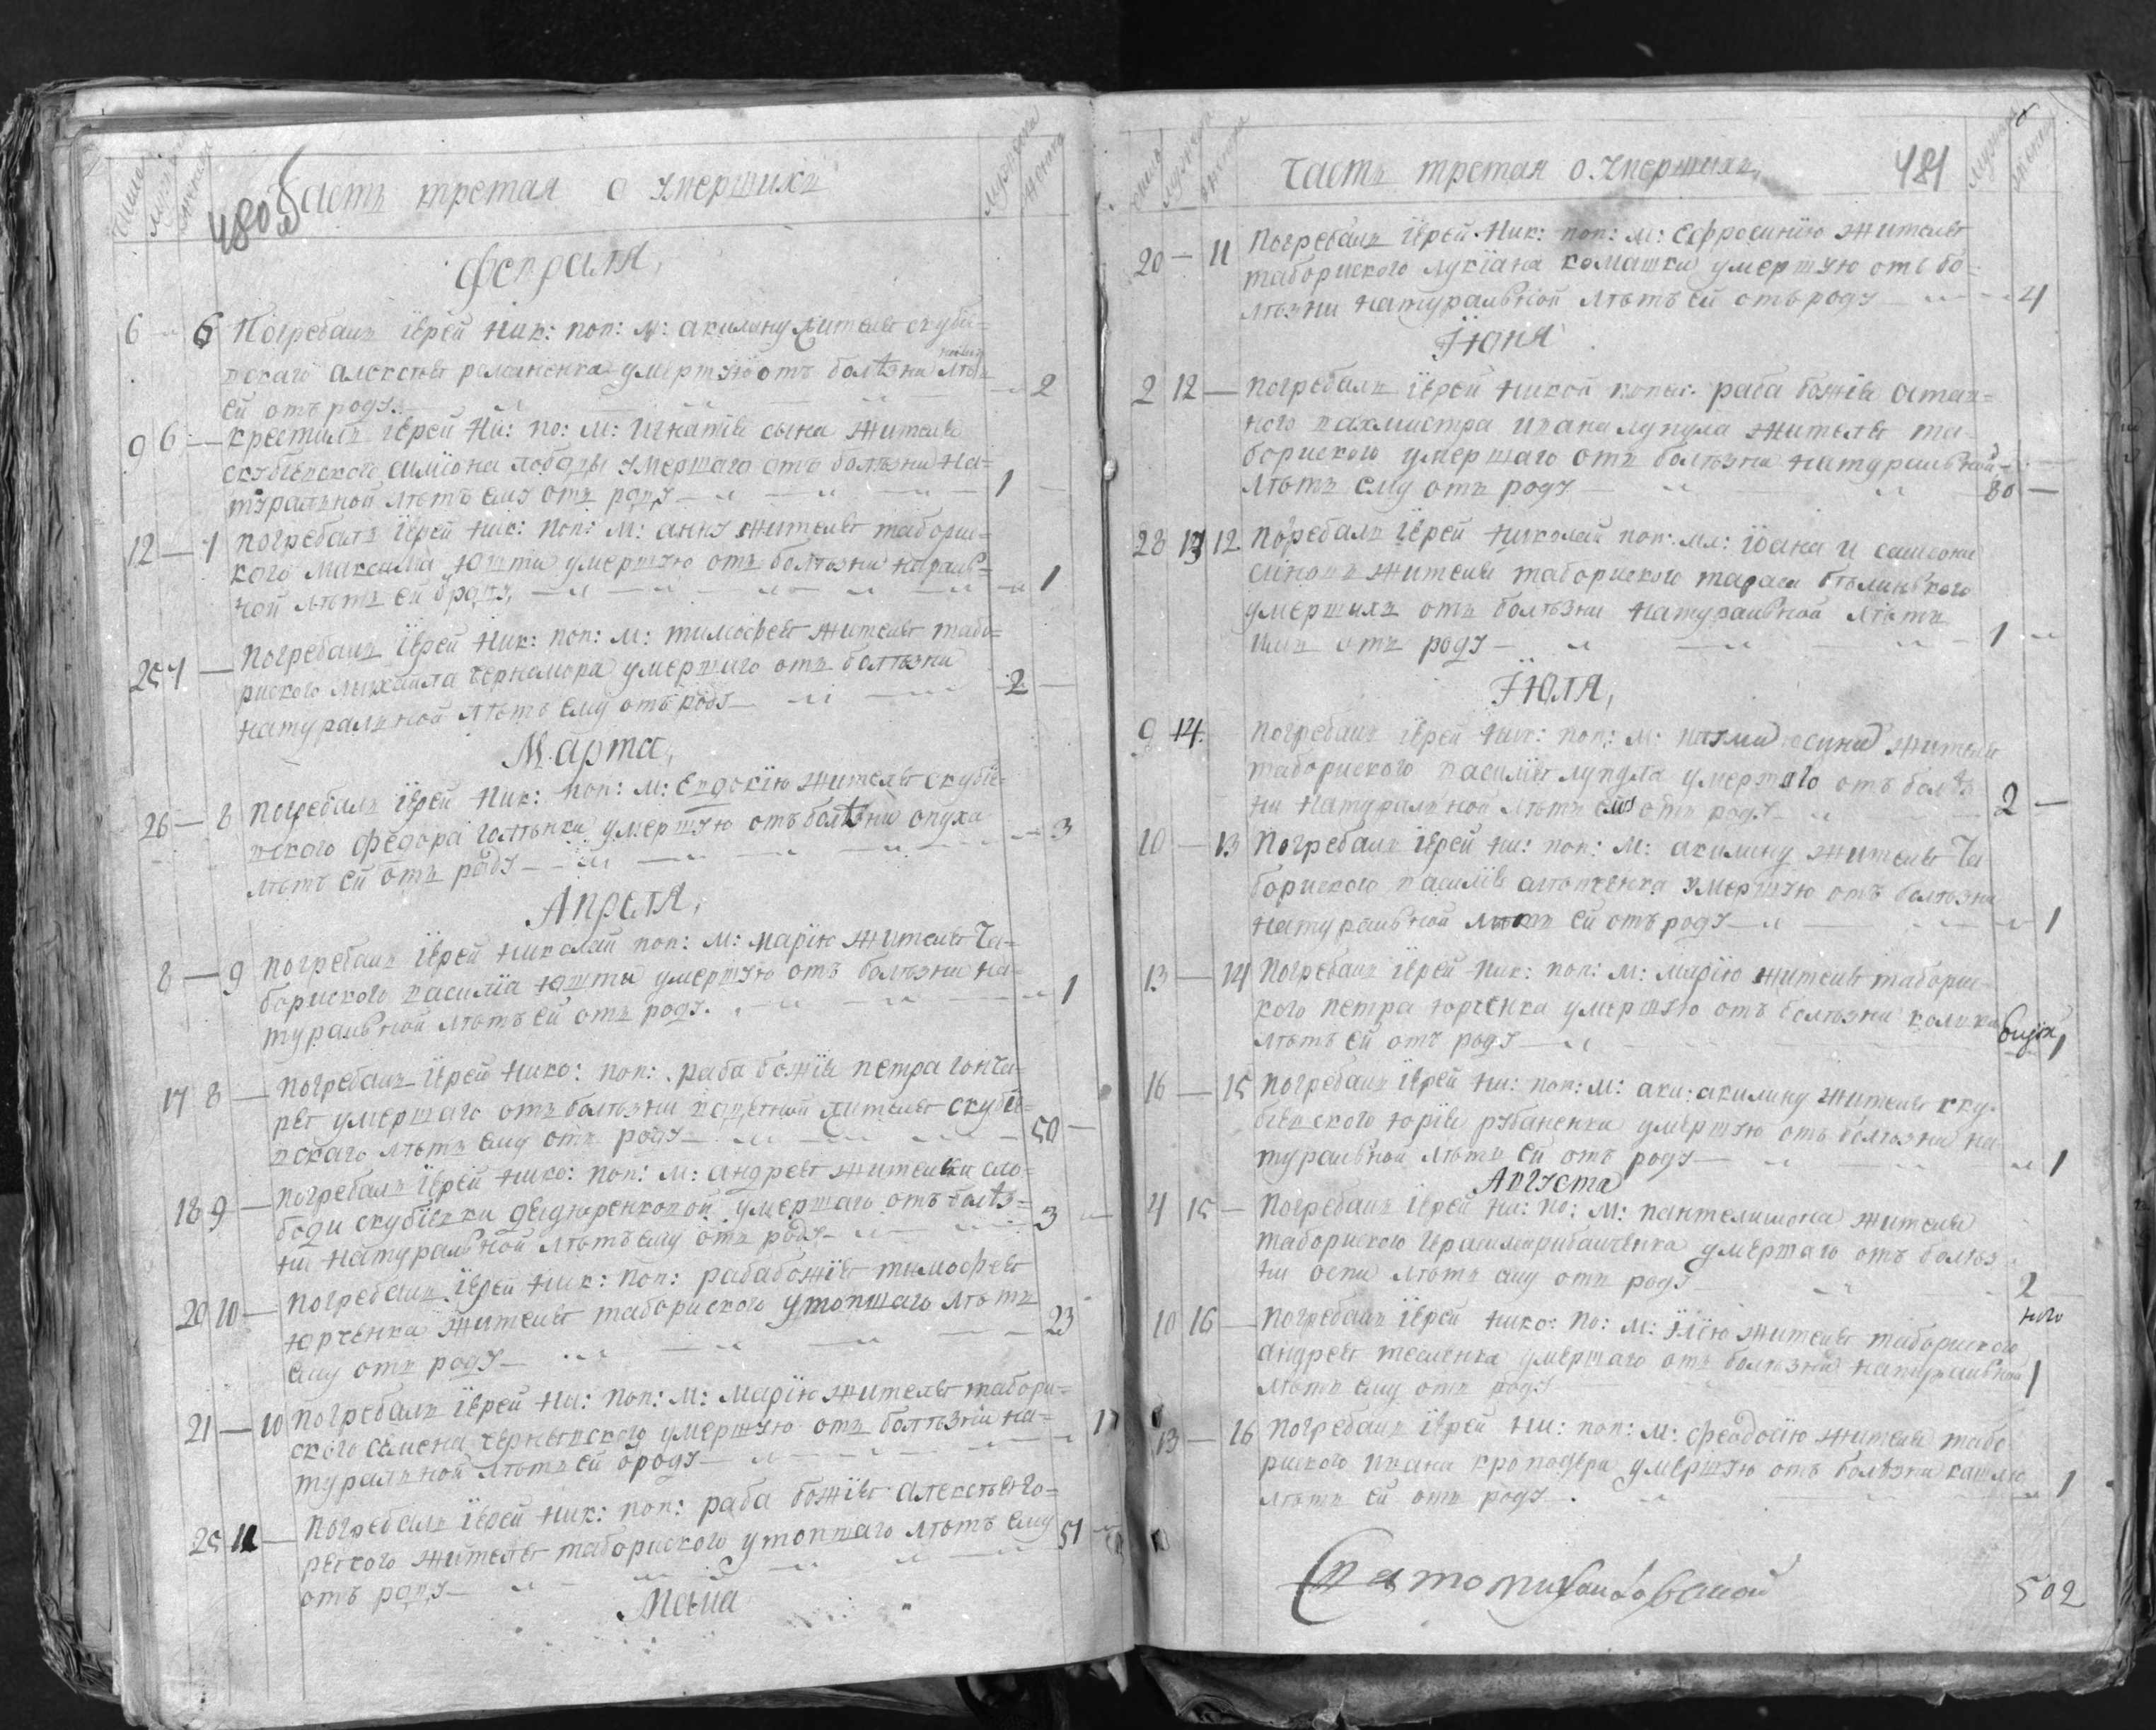 480
Часть третая о умершихъ
Февраля,
6 6 Погребалъ іерей Ник: поп: м: акилину жителя скубіе=
вскаго алексѣя романенка умершую отъ болѣзни лѣтъ
ей отъ роду 2
9 6 крестилъ іерей Ни: по: м: игнатія сына жителя
скубіевского симіона лободы умершаго отъ болѣзни на=
туральной лѣтъ ему отъ роду 1
12 7 погребалъ іерей Ник: поп: м: анну жителя табори=
кого максима юшти умершую отъ болѣзни
ной лѣтъ ей 1
25 7 Погребалъ іерей Ник: поп: м: тимофея жителя табо=
риского михаила черномора умершаго отъ болѣзни
натуральной лѣтъ ему отъ роду 2
Марта,
26 8 Погребалъ іерей Ник: поп: м: Евдокію жителя скубіе=
вского федора умершую отъ болѣзни опуха
лѣтъ ей отъ роду 3
Апреля,
8 9 погребалъ іерей николай поп: м: марію жителя та=
бориского василіа юшты умершую отъ болѣзни на=
туральной лѣтъ ей отъ роду. 1
17 8 погребалъ іерей Нико: поп: раба божія петра гонча=
ря умершаго отъ болѣзни жителя скубіе=
вскаго лѣтъ ему отъ роду 50
18 9 погребалъ іерей Нико: поп: м: андрея жителки сло=
боди скубіевки умершаго отъ болѣз=
ни натуральной лѣтъ ему отъ роду 3
20 10 погребалъ іерей Ник: поп: раба божія тимофея
юрченка жителя табориского утопшаго лѣтъ
ему отъ роду 23
21 10 погребалъ іерей Ни: поп: м: марію жителя табори=
ского семена чернявского умершую отъ болѣзни на=
туральной лѣтъ ей ороду 1
25 11 погребалъ іерей Ник: поп: раба божія алексѣя го=
рского жителя табориского утопшаго лѣтъ ему
отъ роду 51
Маиа
Часть третая о умершихъ, 481
20 11 Погребалъ іерей Ник: поп: м: Ефросинію жителя
табориского лукіана комашки умершую отъ бо=
лѣзни натуральной лѣтъ ей отъ роду 4
Іюня
2 12 погребалъ іерей Никол попы: раба божія отстав=
ного вахмистра ивана лупула жителя та=
бориского умершаго отъ болѣзни натуральной
лѣтъ ему отъ роду 80
28 13 12 погребалъ іерей Николай поп: мл: іоана и самсона
синовъ жителя табориского тараса бѣлинского
умершихъ отъ болѣзни натуральной лѣтъ
имъ отъ роду 1
Іюля,
9 14 погребалъ іерей Ник: поп: м: жителя
табориского василія лупула умершаго отъ болѣз
ни натуральной лѣтъ ему отъ роду 2
10 13 Погребалъ іерей Ни: поп: м: акилину жителя та
бориского василія умершую отъ болѣзни
натуральной лѣтъ ей отъ роду 1
13 14 погребалъ іерей Ник: поп: м: марію жителя табори=
кого петра юрченка умершую отъ болѣзни
лѣтъ ей отъ роду 1
16 15 погребалъ іерей Ни: поп: м: аки: акилину жителя ску=
біевского юрія рубаненка умершую отъ болѣзни на
туральной лѣтъ ей отъ роду 1
Августа
4 15 Погребалъ іерей Ни: по: м: пантелимона жителя
табориского умершаго отъ болѣз
ни оспи лѣтъ ему отъ роду 2
10 16 Погребалъ іерей Нико: по: м: Илію жителя табориского
андрея тесленка умершаго отъ болѣзни натуральной
лѣтъ ему отъ роду 1
13 16 погребалъ іерей Ни: поп: м: феодосію жителя табо
риского ивана умершую отъ болѣзни кашлю
лѣтъ ей отъ роду 1
502